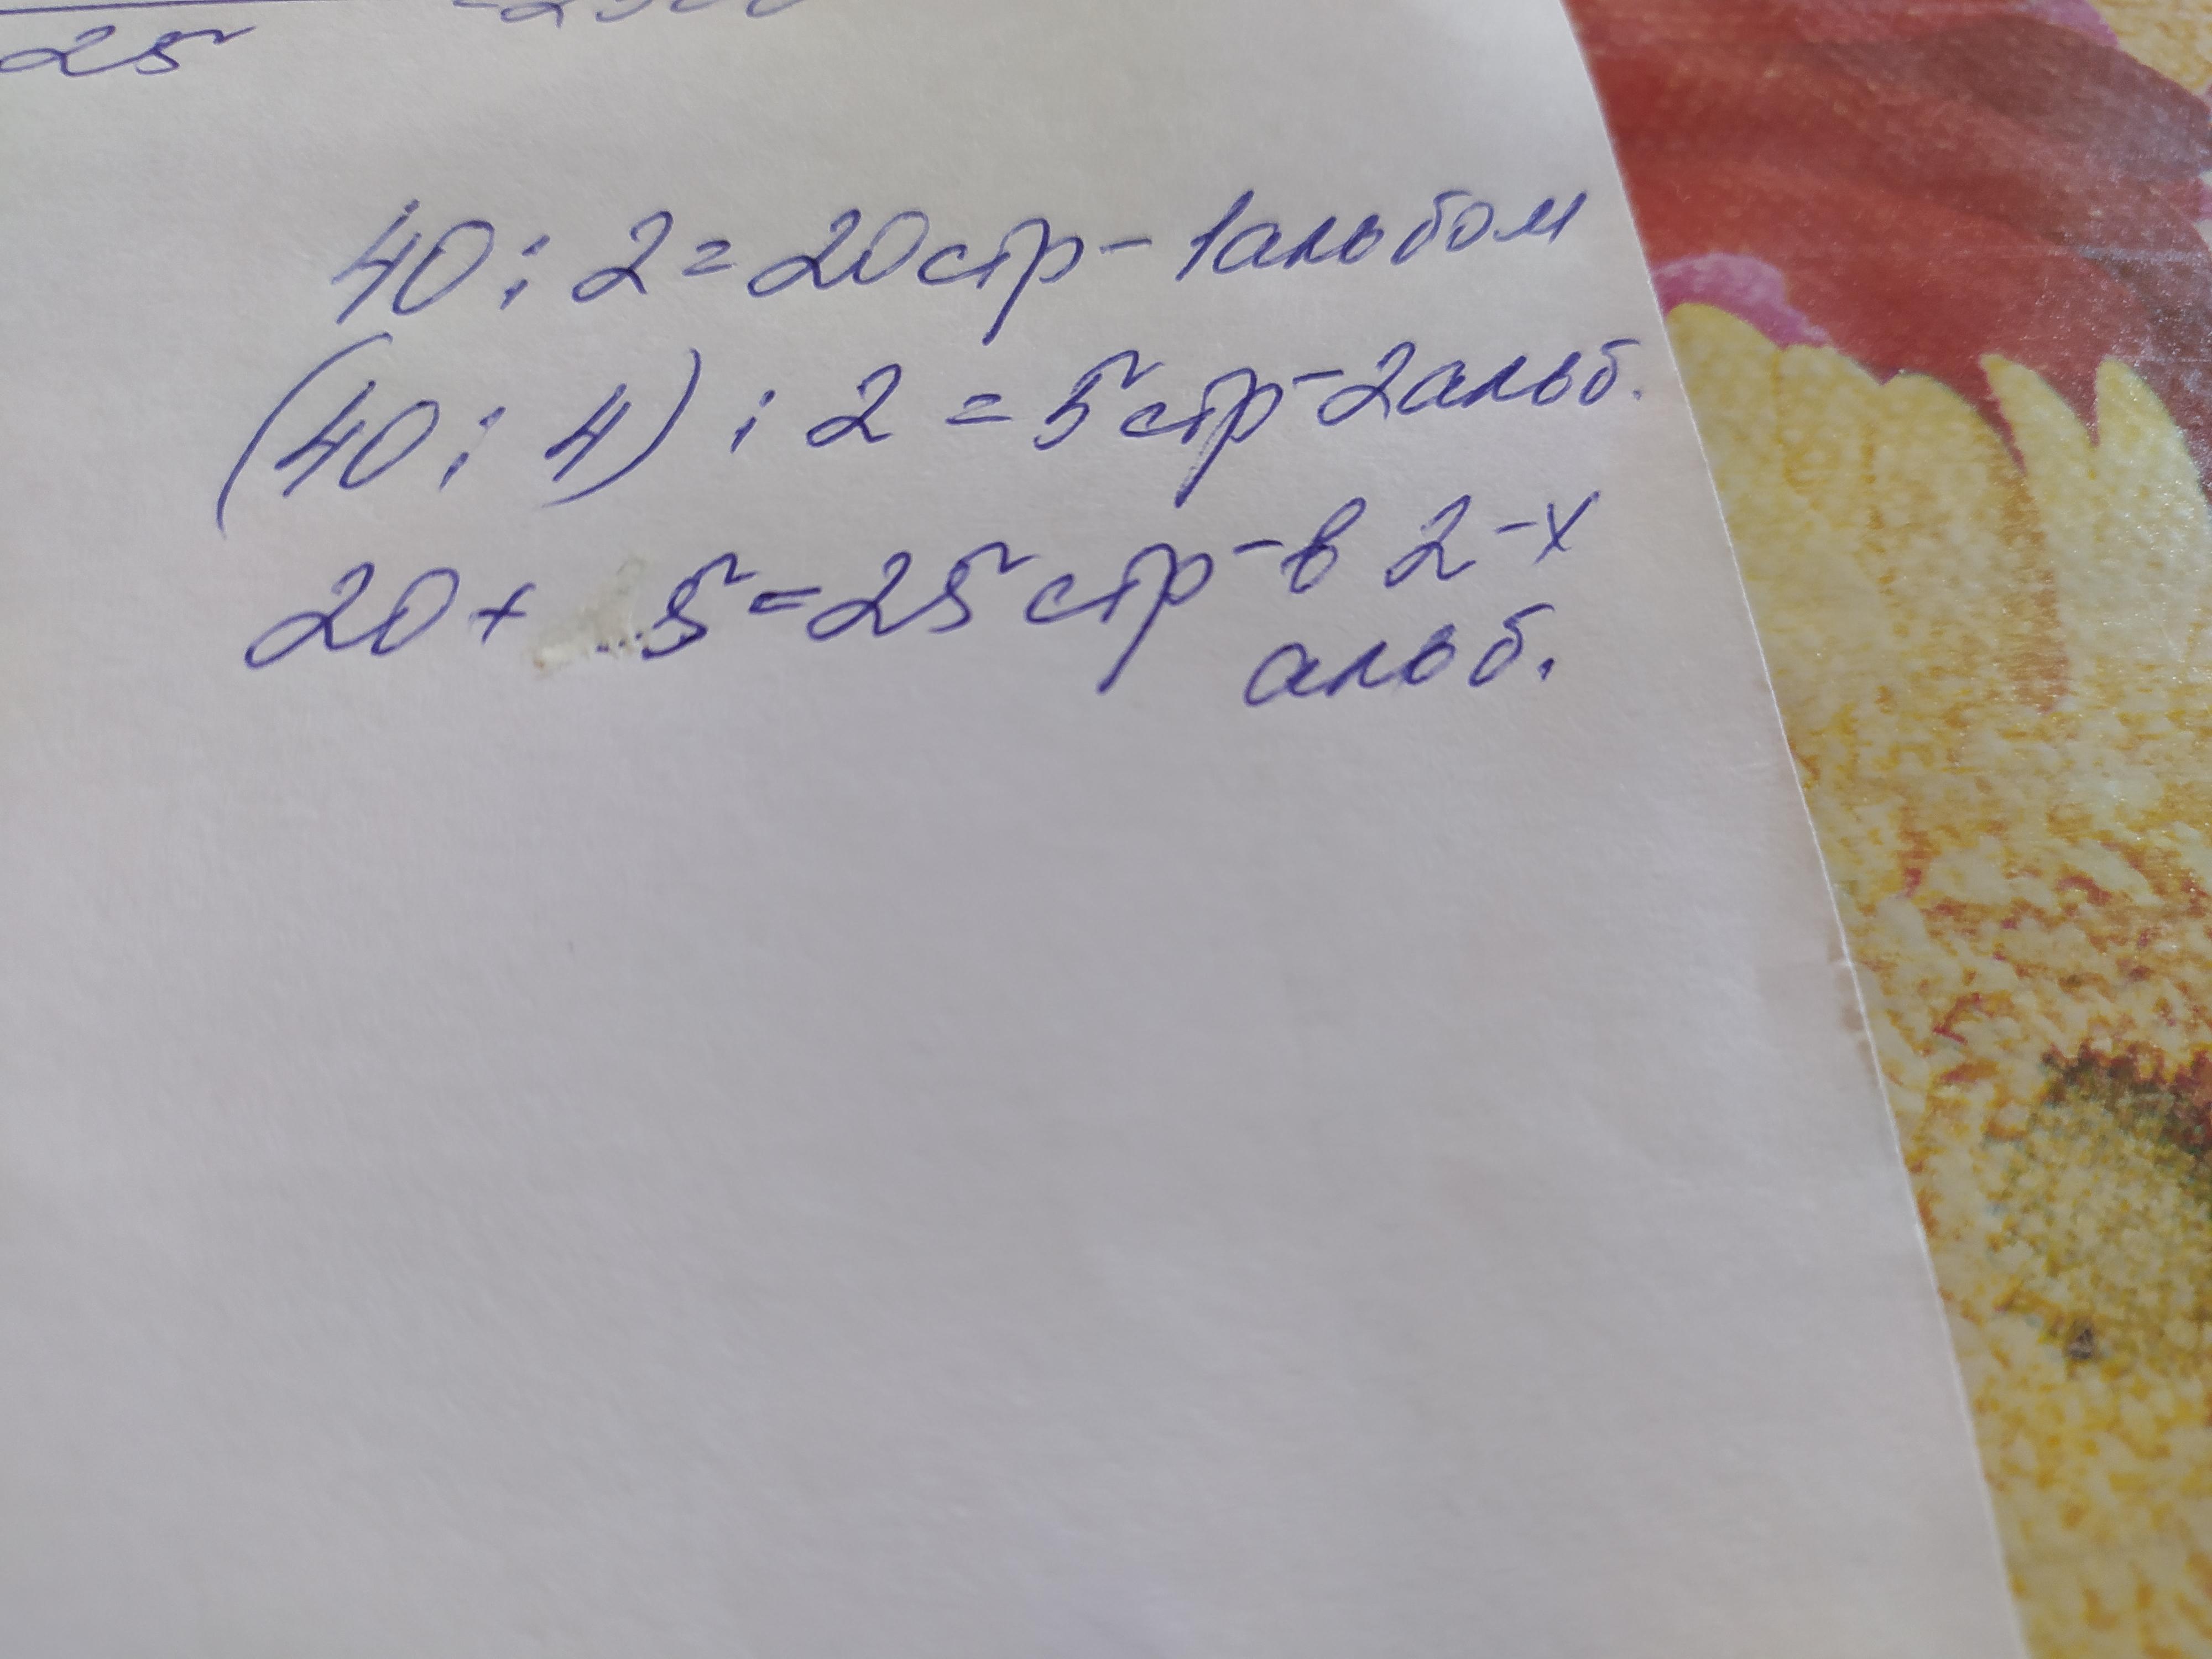 25
40 : 2 = 20 стр - 1 альбом
(40 : 4) : 2 = 5 стр - 2 альб.
20 + 5 = 25 стр - в 2-х
альб.